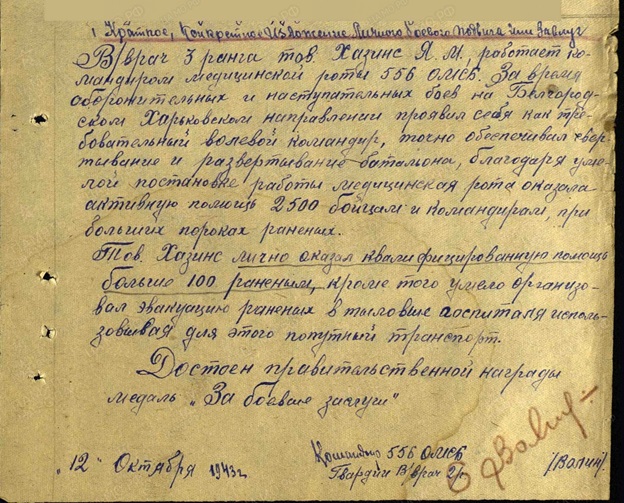 1 Краткое, конкретное изложение личного боевого подвига или заслуг
В/врач 3 ранга тов. Хазинс Я.М, работает ко-
мандиром медицинской роты 556 ОМСБ. За время
оборонительных и наступательных боев на Белгород-
ском Харьковском направлении проявил себя как тре-
бовательный волевой командир, точно обеспечивал свер-
тывание и развертывание батальона, благодаря уме-
лой постановке работы медицинская рота оказала
активную помощь 2500 бойцам и командирам, при
больших пороках раненых.
Тов. Хазинс лично оказал квалифицированную помощь
больше 100 раненым, кроме того умело организо-
вал эвакуацию раненых в тыловые госпиталя исполь-
зовывая для этого попутный транспорт.
Достоен правительственной награды
медаль „За боевые заслуги"
Командир 556 ОМСБ
„12" Октября 1943г. Гвардии В/врач 2р. (Валин)